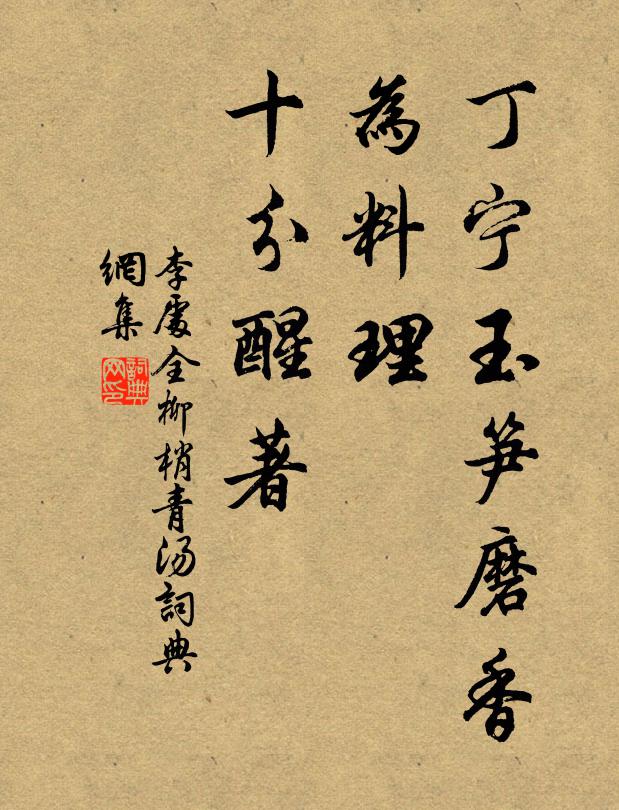 丁宁玉笋磨香
為料理
十分醒著
李處全柳梢青汤詞典
網集
詞典网印